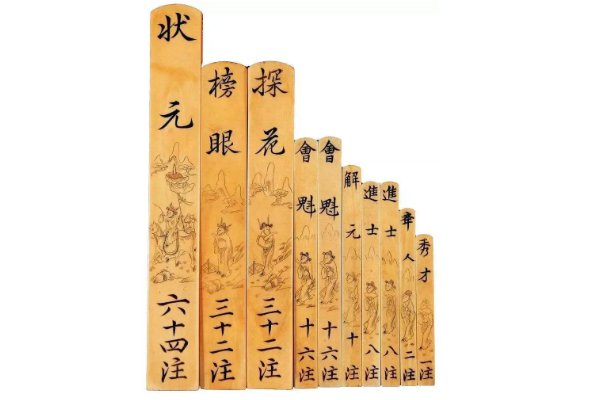 状元 六十四注
榜眼 三十二注
探花 三十二注
會魁 十六注
會魁 十六注
解元 十注
進士 八注
進士 八注
举人 二注
秀才 一注